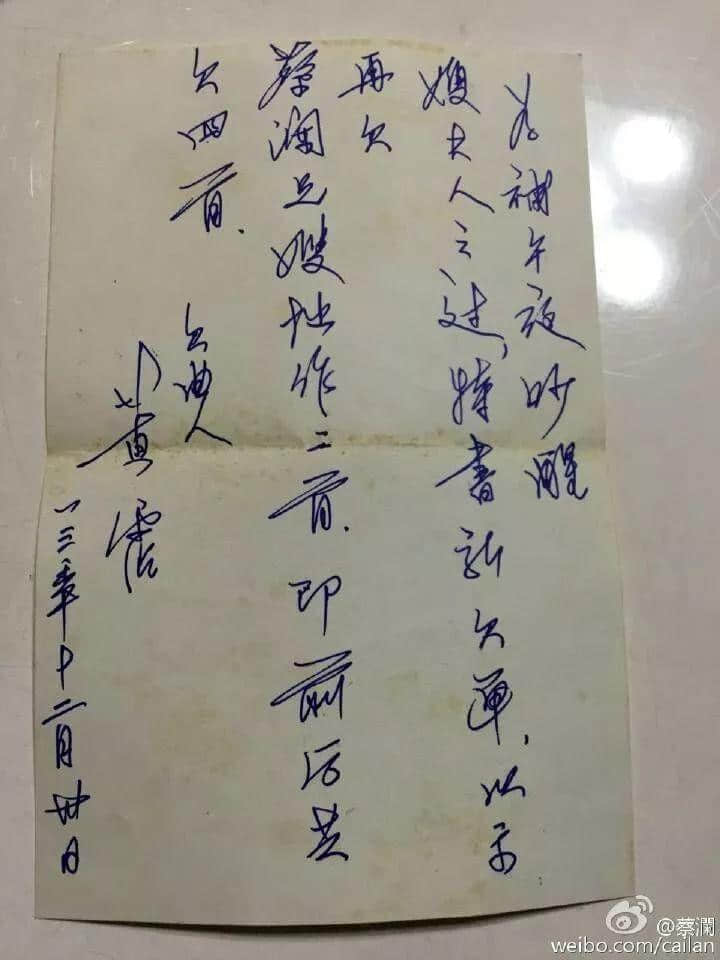 為補午夜吵醒
嫂夫人之过，特書新欠單，以示
再欠
蔡瀾兄嫂拙作二首、即前后共
欠四首、
欠曲人
黄霑
十二月卅日
@蔡瀾
weibo.com/cailan